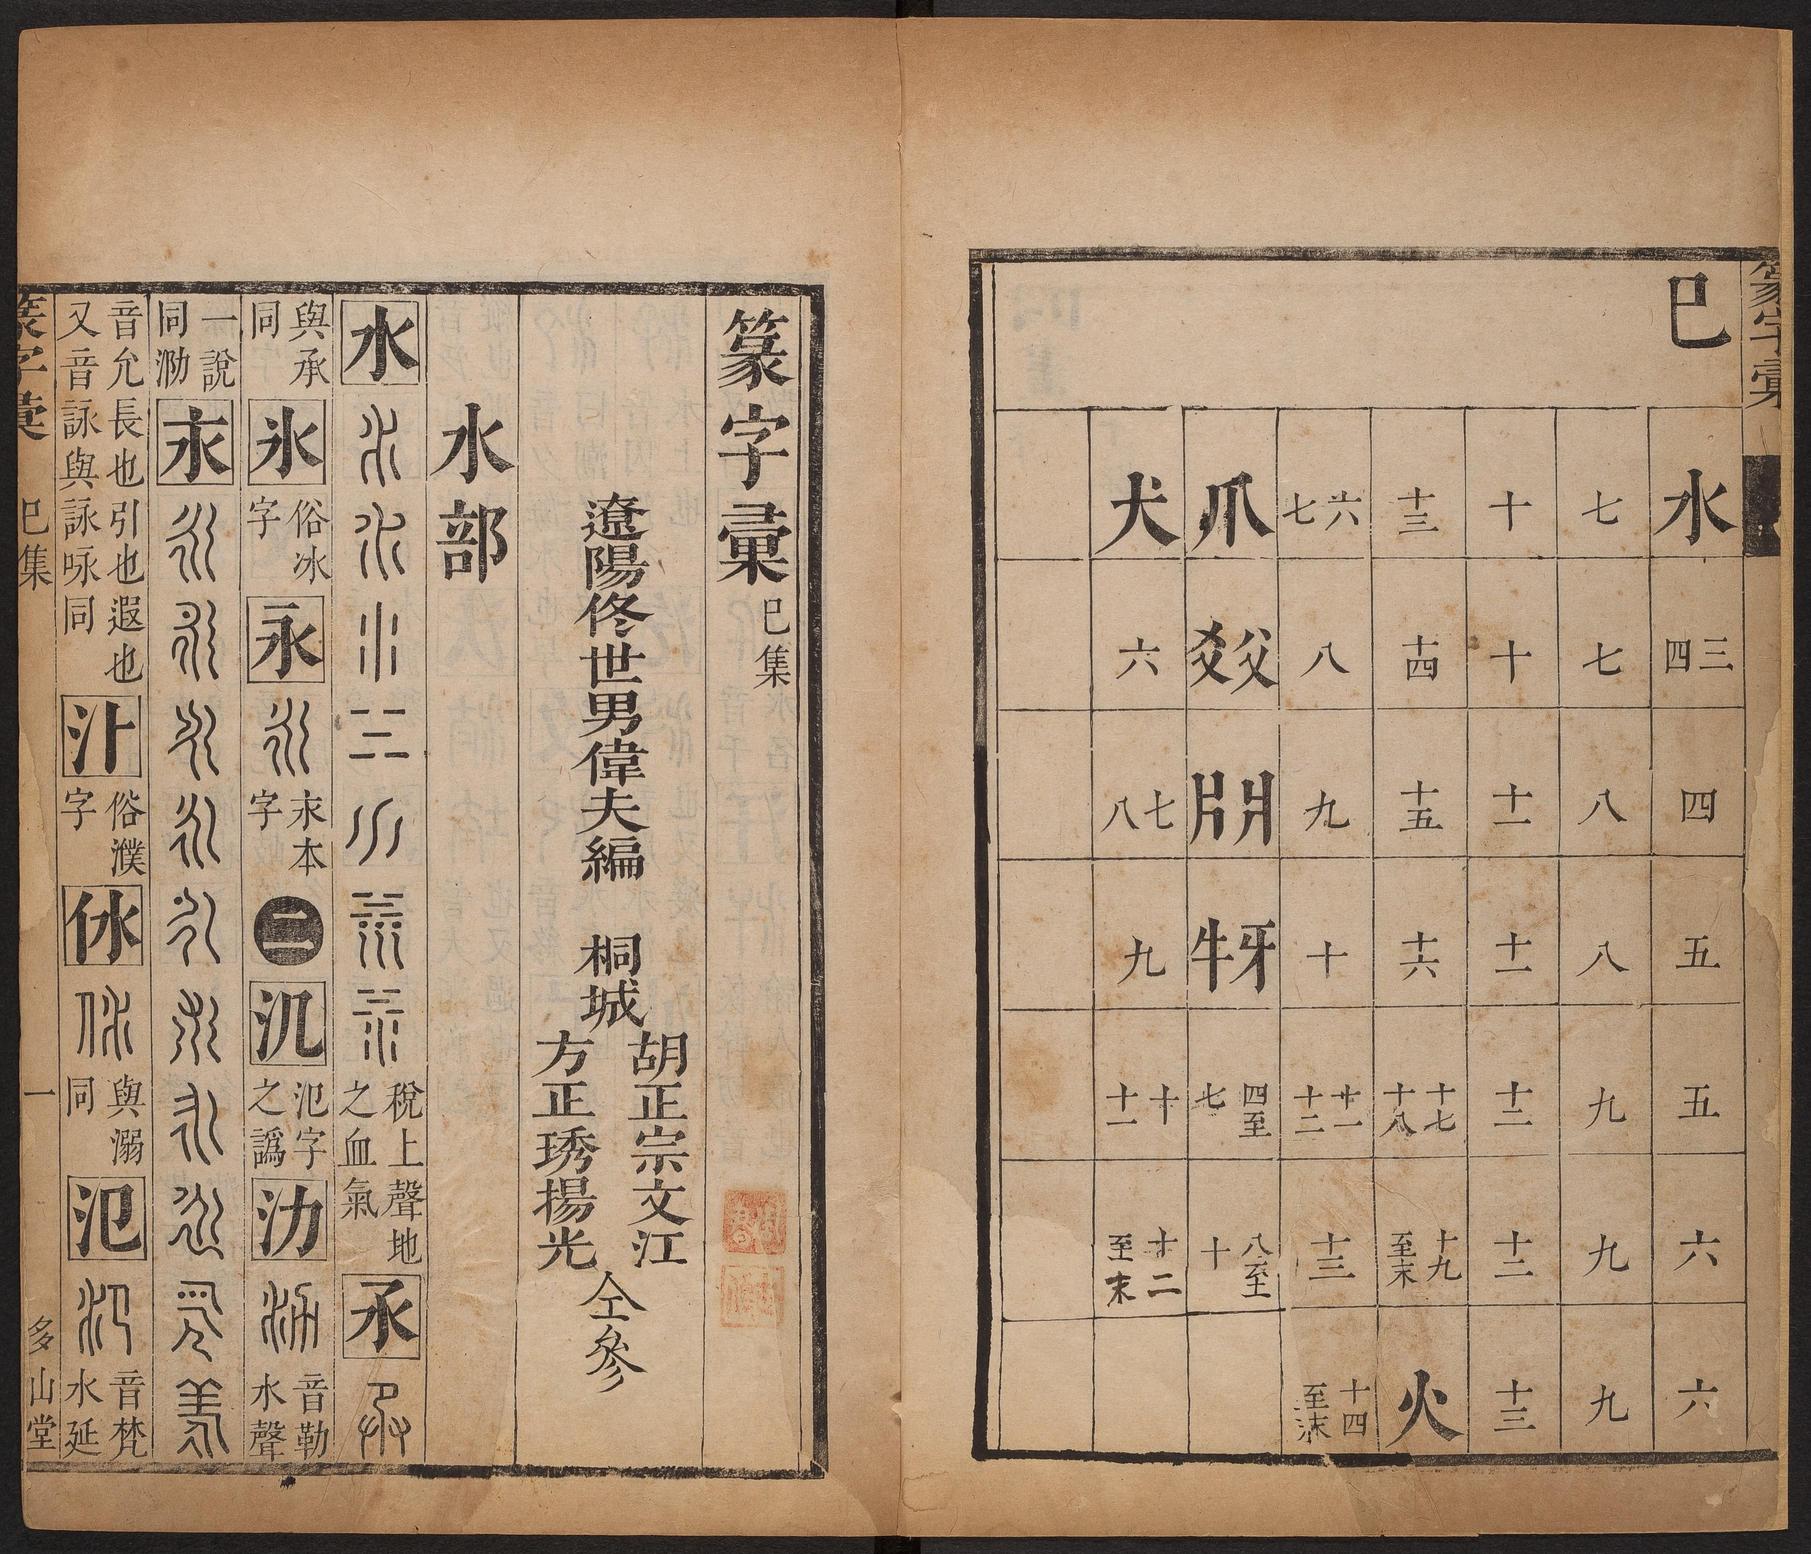 篆字彙
巳
水 三四 四 五 五 六 六
七 七 八 八 九 九 九
十 十 十一 十一 十二 十二 十三
十三 十四 十五 十六 十七十八 十九至末 火
六七 八 九 十 十一十二 十三 十四至末
爪 父爻 爿片 牙牛 四至七 八至十
犬 六 七八 九 十十一 十二至末
篆字彙 巳集
遼陽佟世男偉夫編 桐城 胡正宗文江 方正琇揚光 仝參
水部
水 稅上聲地之血氣 氶
與承同 氷 俗冰字 永 末本字 二 汎 氾字之譌 氻 音勒水聲
一說同泐
音允長也引也遐也又音詠與詠咏同 汁 俗濮字 休 與溺同 氾 音梵水延
篆字彙 巳集 一 多山堂